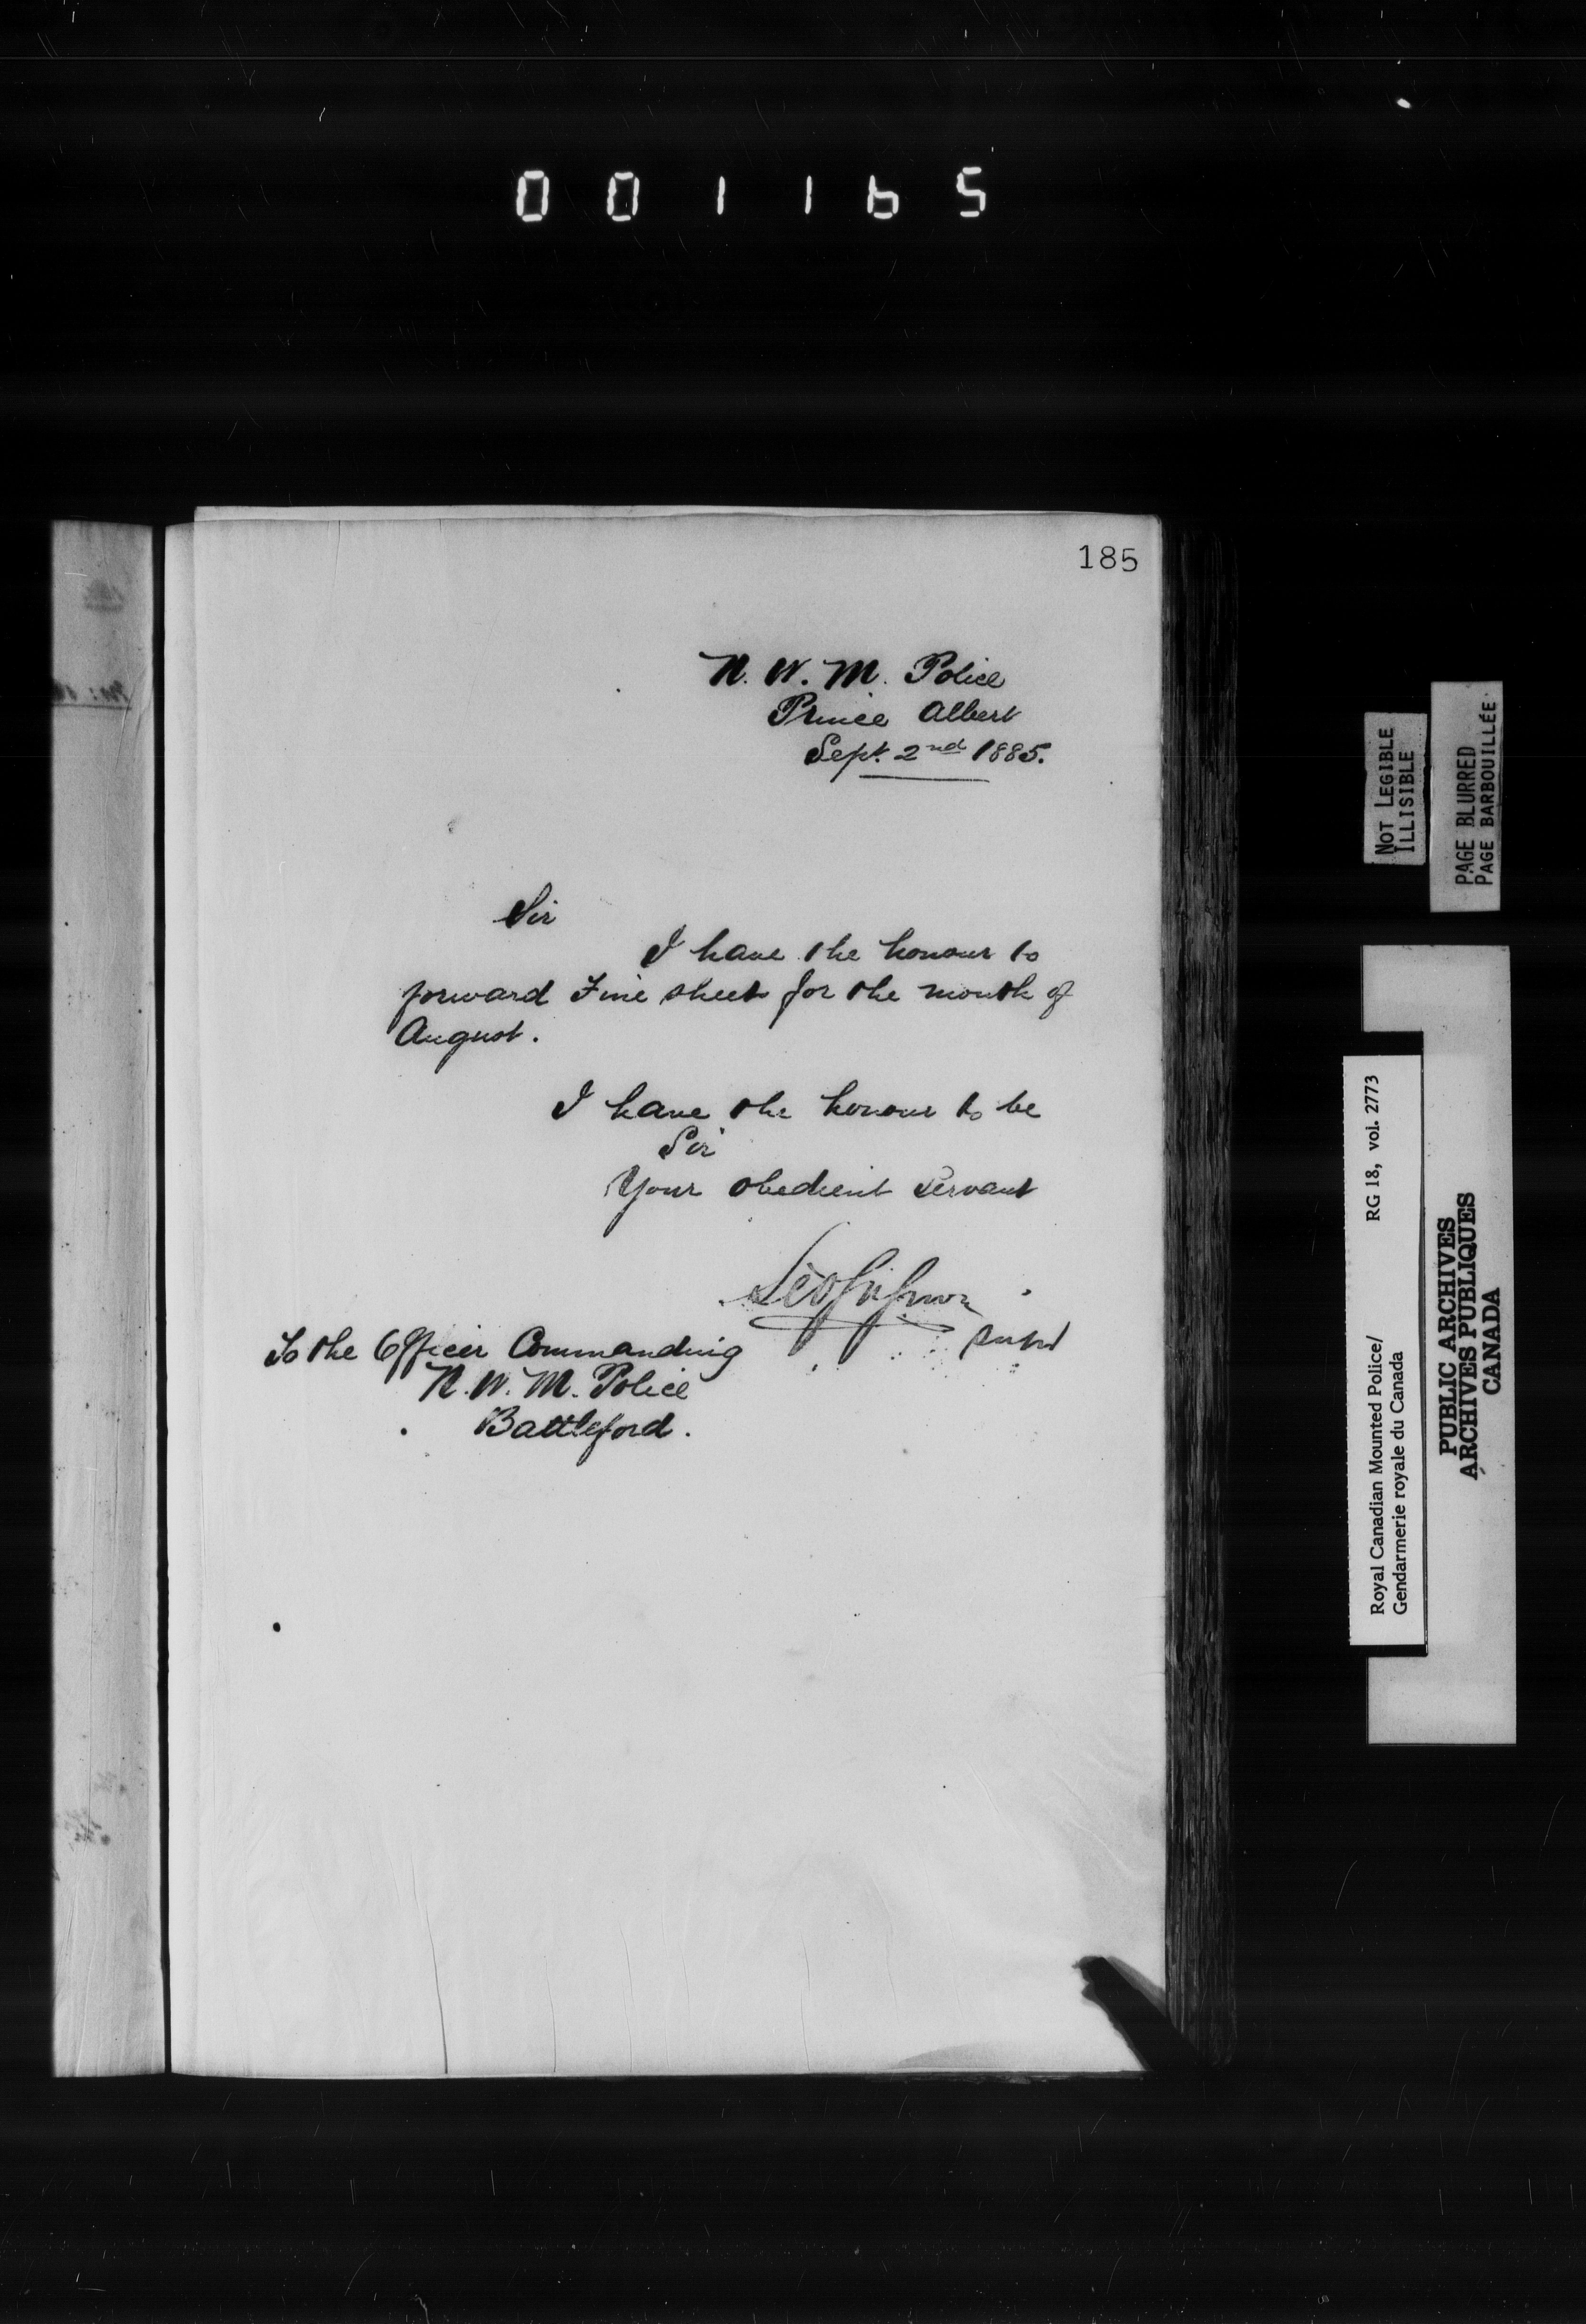 001165
185
N. W. M. Police
Prince Albert
Sept. 2nd 1885.
Sir
I have the honour to
forward Fine sheet for the month of
August.
I have the honour to be
Sir
Your obedient servant
Supt
To the Officer Commanding
N. W. M. Police
Battleford.
NOT LEGIBLE
ILLISIBLE
PAGE BLURRED
PAGE BARBOUILLÉE
Royal Canadian Mounted Police/ RG 18, vol. 2773
Gendarmerie royale du Canada
PUBLIC ARCHIVES
ARCHIVES PUBLIQUES
CANADA